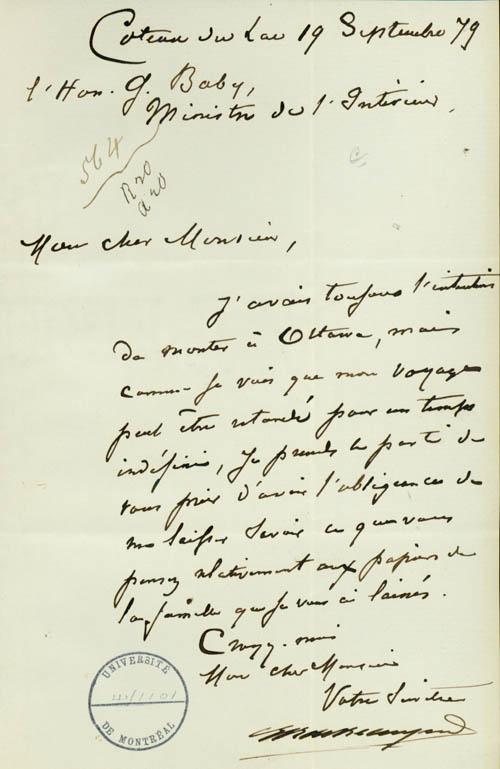 Coteau du Lac 19 Septembre 79
l'Hon. G. Baby,
Ministre de l'Intérieur,
564
R 20
a 20
Mon cher Monsieur,
J'avais toujours l'intention
de monter à Ottawa, mais
comme je vois que mon voyage
peut être retardé pour un temps
indéfini, je prends le parti de
vous prier d'avoir l'obligeance de
me laisser savoir ce que vous
pensez relativement aux papiers de
la famille que je vous ai laissés.
Croyez-moi
Mon cher Monsieur
Votre Serviteur
UNIVERSITÉ
DE MONTRÉAL